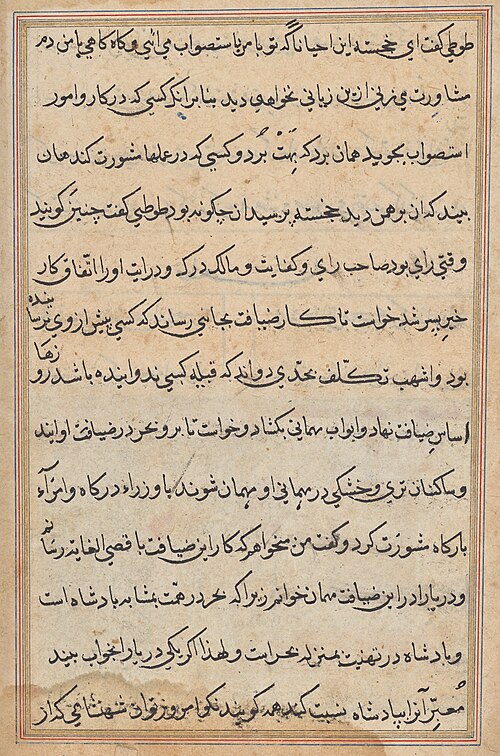 طوطی گفت ای خجسته این احیاناً که تو با من باستصواب می آئی و کاه کاهی با من دم
مشاورت می زنی ازین زیانی نخواهی دید بنابرانکه کسی که در کار و امور
استصواب بجوید همان برد که بَهَتْ بُرد و کسی که در عملها مشورت کند همان
بیند که ان برهمن دید خجسته پرسید ان چکونه بود طوطی گفت چنین کویند
وقتی رای بود صاحب رای و کفایت و مالک درک و درایت او را اتفاق کار
خیر پسر شد خواست تا کار ضیافت بجایی رساند که کسی پیش از وی نرسانیده
بود و اشهب تکلّف بحدی دواند که قبله کسی ندوانیده باشد روزها
اساس ضیافت نهاد و ابواب مهمانی بکشاد و خواست تا بر و بحر در ضیافت او ایند
و ساکنان تری و خشکی در مهمانی او مهمان شوند با وزراء درکاه و امرآء
بارکاه مشورت کرد و کفت من میخواهم که کار این ضیافت باقصی الغایه رسانم
و دریا را درین ضیافت مهمان خوانم زیرا که بحر در همت بمثابه بادشاه است
و بادشاه در تهنیت بمنزله بحر است و لهذا اکر یکی دریا را بخواب بیند
مُعبّر آنرا ببادشاه نسبت کند هم کویند نکو امروز توان شهنشاهی که از